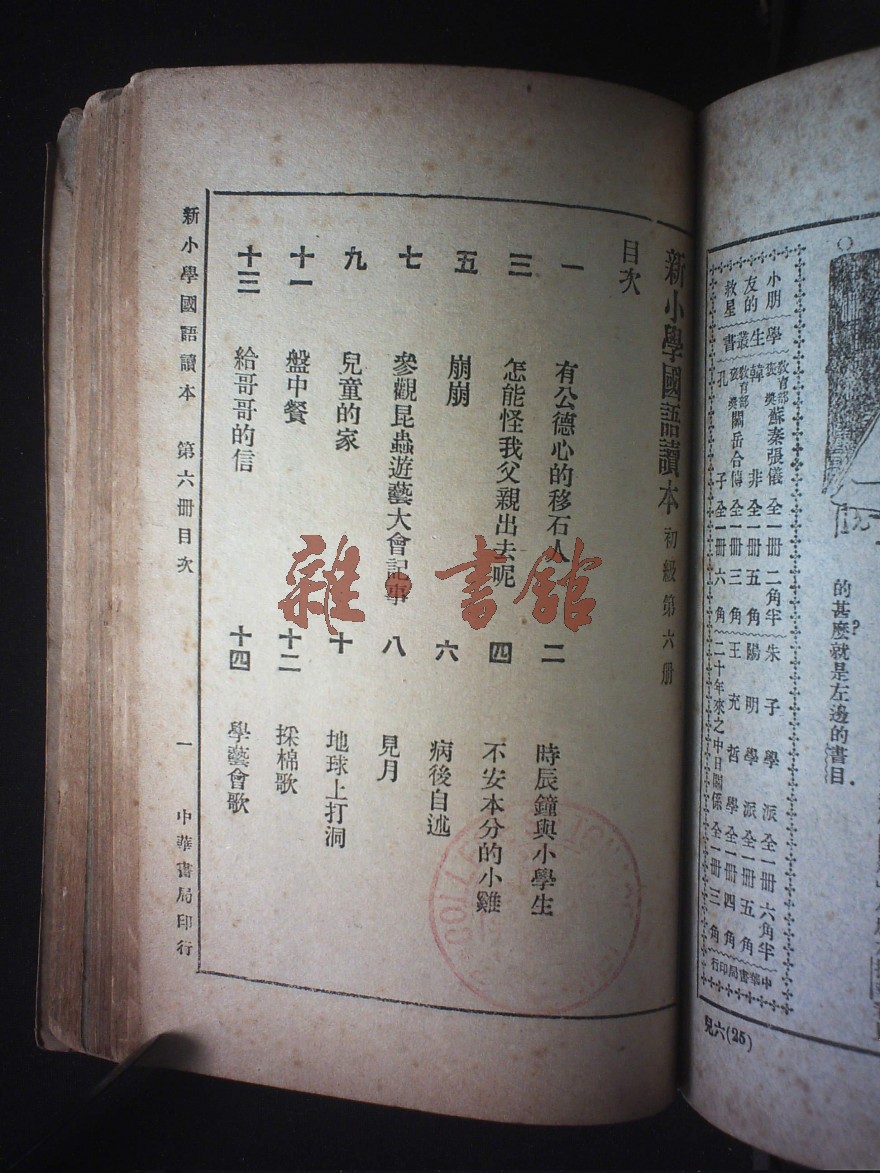 新小學國語讀本 初級第六册
目次
一 有公德心的移石人 二 時辰鐘與小學生
三 怎能怪我父親出去呢 四 不安本分的小雞
五 崩崩 六 病後自述
七 參觀昆蟲遊藝大會記事 八 見月
九 兒童的家 十 地球上打洞
十一 盤中餐 十二 採棉歌
十三 給哥哥的信 十四 學藝會歌
新小學國語讀本 第六册目次 一 中華書局印行
雜·書館
的甚麼?就是左邊的書目.
小朋友的救星
學生叢書
教育部獎蘇秦張儀 全一册 二角半
韓非 全一册 五角
教育部獎關岳合傳 全一册 三角
孔子 全一册 六角
朱子學派 全一册 六角半
陽明學派 全一册 五角
王充哲學 全一册 四角
二十年來之中日關係 全一册 三角
中華書局印行
兒六(25)